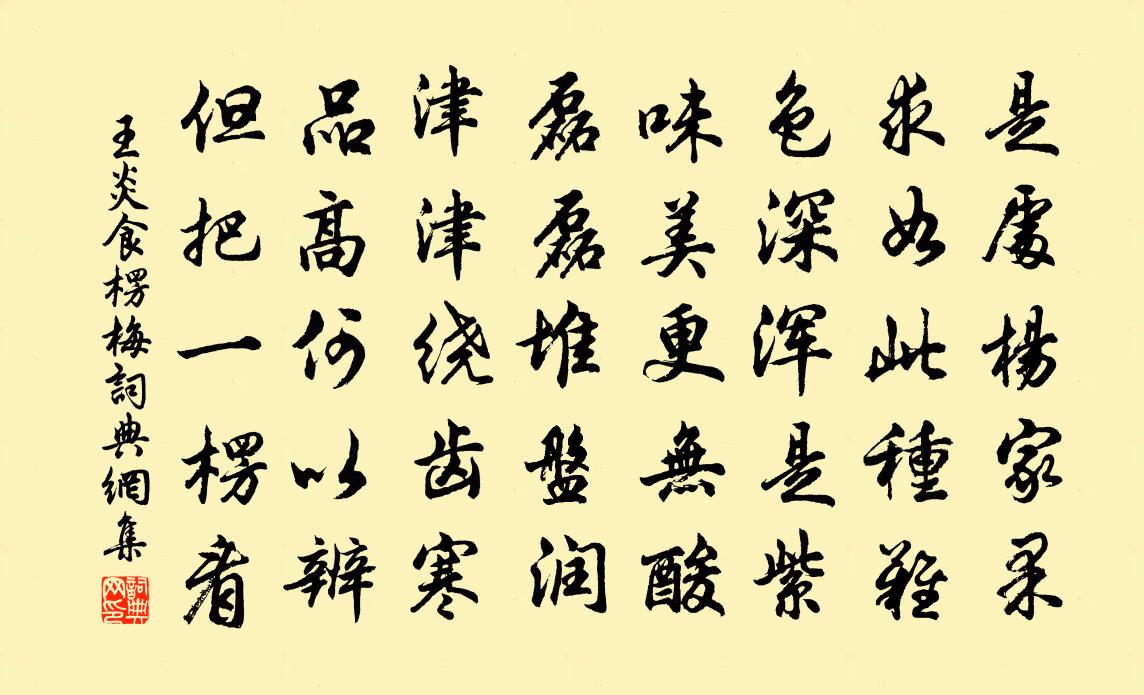 是處楊家果
求如此種難
色深浑是紫
味美更無酸
磊磊堆盤润
津津绕齿寒
品高何以辨
但把一楞看
王炎食楞梅詞典網集
詞典
网印